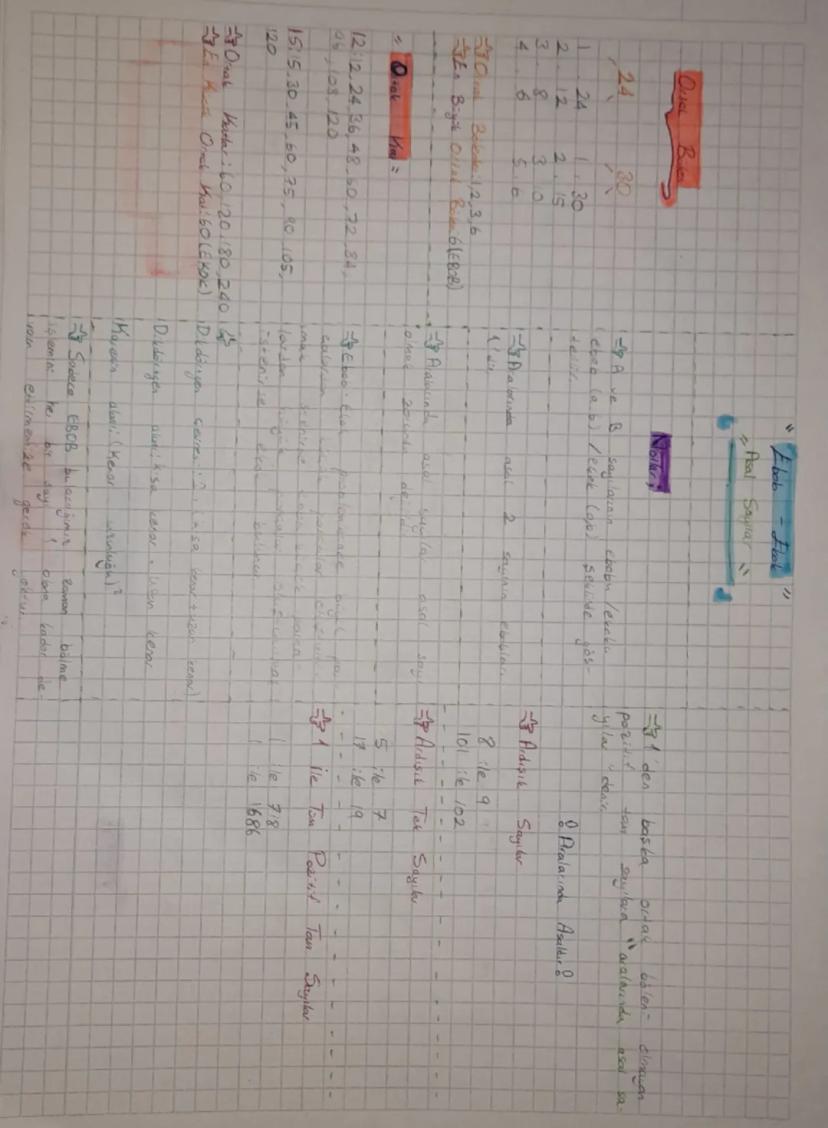 "Ebob - Ekok"
"Asal Sayılar"
Ortak Bölen
24 30
1 . 24 1 . 30
2 . 12 2 . 15
3 . 8 3 . 10
4 . 6 5 . 6
⇒ Ortak Bölenler: 1, 2, 3, 6
⇒ En Büyük Ortak Bölen: 6 (EBOB)
" Ortak Kat =
12: 12, 24, 36, 48, 60, 72, 84,
96, 108, 120
15: 15, 30, 45, 60, 75, 90, 105,
120
⇒ Ortak Katlar: 60, 120, 180, 240
⇒ En Küçük Ortak Kat: 60 (EKOK)
Notlar;
⇒ A ve B sayılarının ebobu / ekoku
ebob (a,b) / ekok (a,b) şeklinde gös-
terilir.
⇒ Aralarında asal 2 sayının ebobları
1'dir.
⇒ Aralarında asal sayılar asal sayı
olmak zorunda değildir.
⇒ Ebob - Ekok problemlerinde
istenirse ekok
Dikdörtgen çevresi: 2 . (kısa kenar + uzun kenar)
Dikdörtgen alanı: kısa kenar . uzun kenar
Karenin alanı: (kenar uzunluğu)²
⇒ Sadece EBOB bulacağımız zaman bölme
işlemini her bir sayı 1 olana kadar de-
vam ettirmemize gerek yoktur.
⇒ 1'den başka ortak bölen- olmayan
pozitif tam sayılara "aralarında asal sa-
yılar" denir.
! Aralarında Asaldır !
⇒ Ardışık Sayılar
8 ile 9
101 ile 102
⇒ Ardışık Tek Sayılar
5 ile 7
17 ile 19
⇒ 1 ile Tüm Pozitif Tam Sayılar
1 ile 718
1 ile 1686